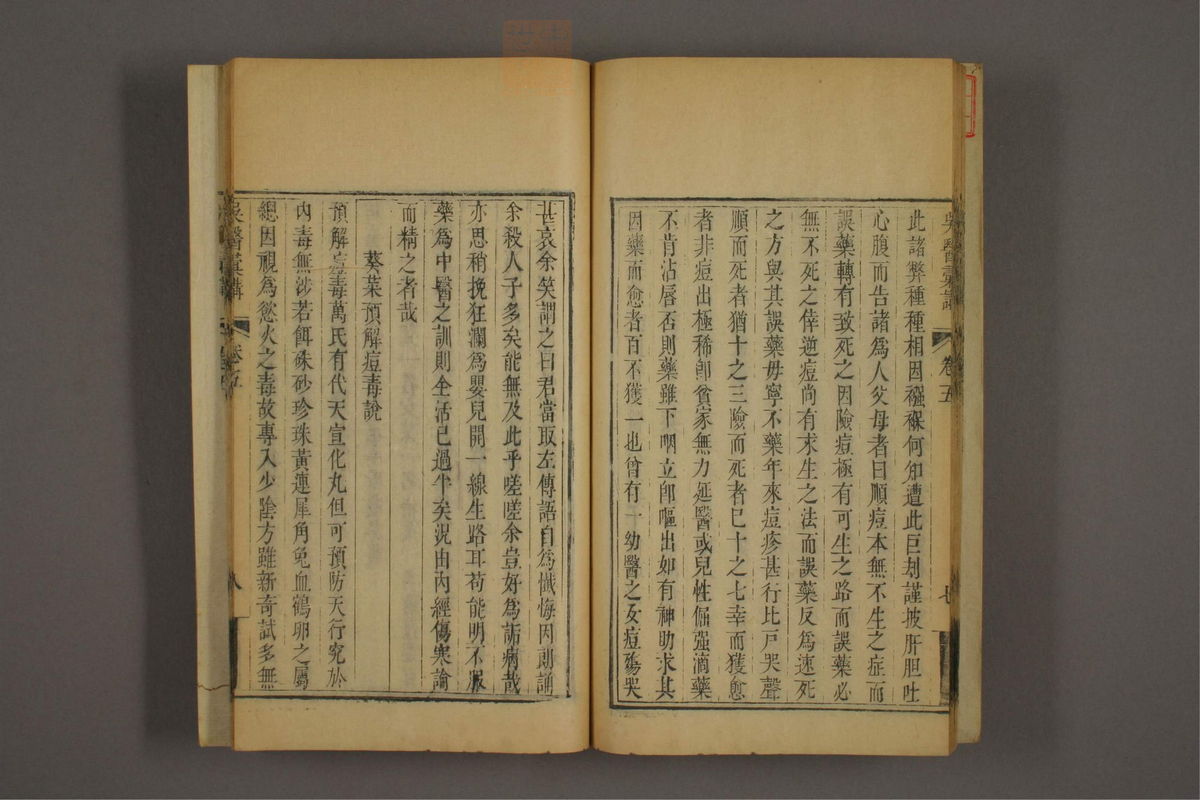 吳醫彙講
卷五
七
此諸弊種種相因襁褓何知遭此巨刦謹披肝胆吐
心腹而告諸爲人父母者曰順痘本無不生之症而
誤藥轉有致死之因險痘極有可生之路而誤藥必
無不死之倖逆痘尚有求生之法而誤藥反爲速死
之方與其誤藥毋寧不藥年來痘疹甚行比戸哭聲
順而死者猶十之三險而死者已十之七幸而獲愈
者非痘出極稀卽貧家無力延醫或兒性倔强滴藥
不肯沾唇否則藥雖下咽立卽嘔出如有神助求其
因藥而愈者百不獲一也曾有一幼醫之女痘殤哭
甚哀余笑謂之曰君當取左傳語自爲懺悔因朗誦
余殺人子多矣能無及此乎嗟嗟余豈好爲詬病哉
亦思稍挽狂瀾爲嬰兒開一線生路耳苟能明不服
藥爲中醫之訓則全活已過半矣況由內經傷寒論
而精之者哉
葵菜預解痘毒說
預解痘毒萬氏有代天宣化丸但可預防天行究於
內毒無涉若餌硃砂珍珠黃連犀角兔血鶴卵之屬
總因視爲慾火之毒故專入少陰方雖新奇試多無
吳醫彙講
卷五
八